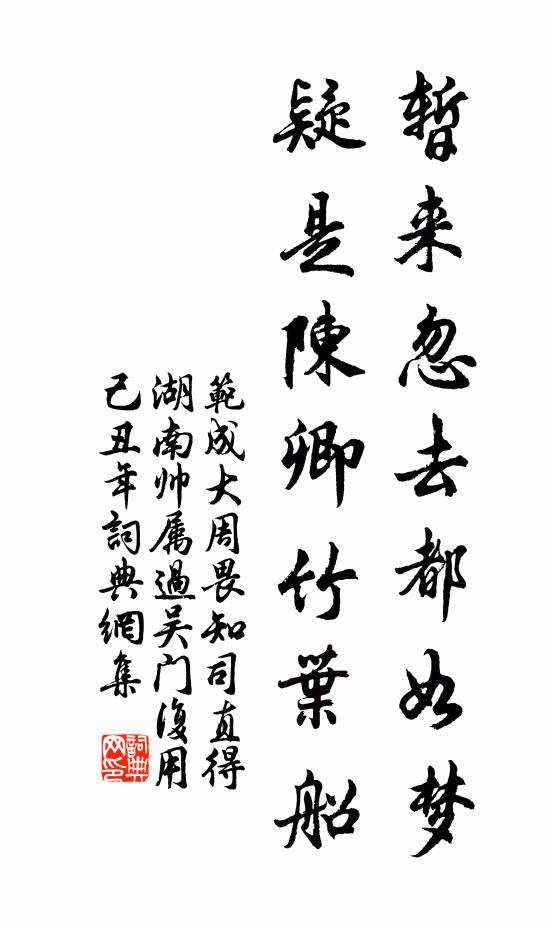 暫来忽去都如梦
疑是陳卿竹葉船
範成大周畏知司直得
湖南帅属過吴门復用
己丑年詞典網集
詞典
网印